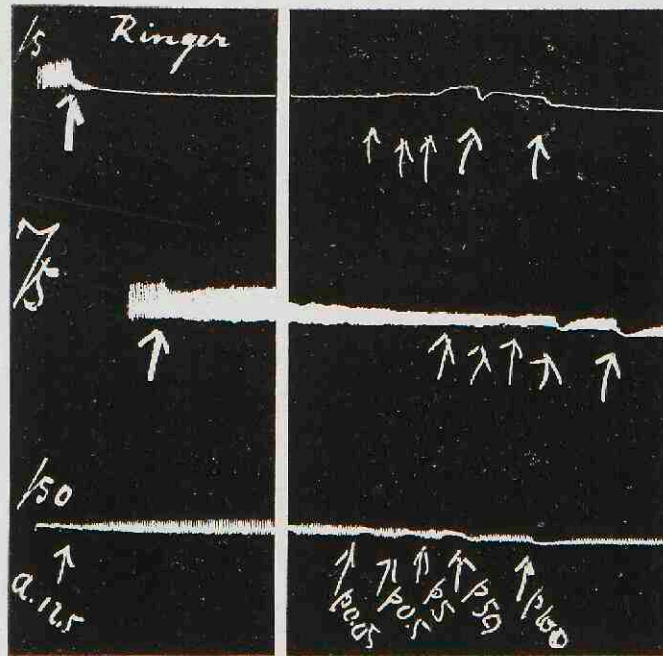 Ringer
/5
7/5
/50
a.12.5
p0.05
p0.5
p5
p50
p100